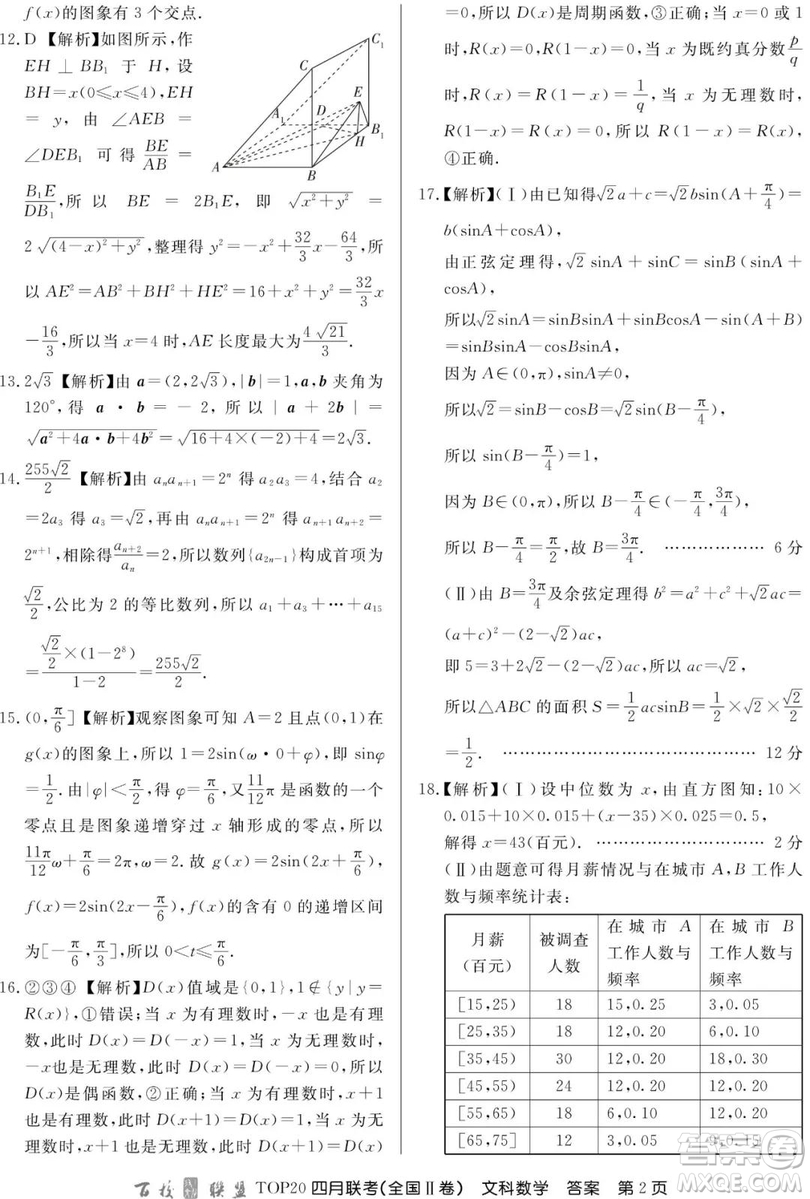 f(x)的图象有 3 个交点.
12. D 【解析】如图所示, 作
EH ⊥ BB₁ 于 H, 设
BH=x(0≤x≤4), EH
= y, 由 ∠AEB =
∠DEB₁ 可得 BE/AB =
B₁E/DB₁, 所以 BE = 2B₁E, 即 √(x²+y²) =
2√((4-x)²+y²), 整理得 y²=-x²+32/3x-64/3, 所
以 AE²=AB²+BH²+HE²=16+x²+y²=32/3x
-16/3, 所以当 x=4 时, AE 长度最大为 4√21/3.
A
B
C
D
E
H
A₁
B₁
C₁
13. 2√3 【解析】由 a=(2,2√3), |b|=1, a,b 夹角为
120°, 得 a·b=-2, 所以 |a+2b|=
√(a²+4a·b+4b²)=√(16+4×(-2)+4)=2√3.
14. 255√2/2 【解析】由 aₙaₙ₊₁=2ⁿ 得 a₂a₃=4, 结合 a₂
=2a₃ 得 a₃=√2, 再由 aₙaₙ₊₁=2ⁿ 得 aₙ₊₁aₙ₊₂=
2ⁿ⁺¹, 相除得 aₙ₊₂/aₙ=2, 所以数列{a₂ₙ₋₁}构成首项为
√2/2, 公比为 2 的等比数列, 所以 a₁+a₃+…+a₁₅
=(√2/2×(1-2⁸))/(1-2)=255√2/2.
15. (0,π/6] 【解析】观察图象可知 A=2 且点(0,1)在
g(x)的图象上, 所以 1=2sin(ω·0+φ), 即 sinφ
=1/2. 由|φ|<π/2, 得 φ=π/6, 又 11/12π 是函数的一个
零点且是图象递增穿过 x 轴形成的零点, 所以
11π/12 ω+π/6=2π, ω=2. 故 g(x)=2sin(2x+π/6),
f(x)=2sin(2x-π/6), f(x)的含有 0 的递增区间
为[-π/6,π/3], 所以 0<t≤π/6.
16. ②③④ 【解析】D(x)值域是{0,1}, 1∉{y|y=
R(x)}, ①错误; 当 x 为有理数时, -x 也是有理
数, 此时 D(x)=D(-x)=1, 当 x 为无理数时,
-x也是无理数, 此时 D(x)=D(-x)=0, 所以
D(x)是偶函数, ②正确; 当 x 为有理数时, x+1
也是有理数, 此时 D(x+1)=D(x)=1, 当 x 为
无理数时, x+1 也是无理数, 此时 D(x+1)=D(x)
=0, 所以 D(x)是周期函数, ③正确; 当 x=0 或 1
时, R(x)=0, R(1-x)=0, 当 x 为既约真分数 p/q
时, R(x)=R(1-x)=1/q, 当 x 为无理数时,
R(1-x)=R(x)=0, 所以 R(1-x)=R(x),
④正确.
17. 【解析】(Ⅰ)由已知得√2a+c=√2bsin(A+π/4)=
b(sinA+cosA),
由正弦定理得, √2sinA+sinC=sinB(sinA+
cosA),
所以√2sinA=sinBsinA+sinBcosA-sin(A+B)
=sinBsinA-cosBsinA,
因为 A∈(0,π), sinA≠0,
所以√2=sinB-cosB=√2sin(B-π/4),
所以 sin(B-π/4)=1,
因为 B∈(0,π), 所以 B-π/4∈(-π/4,3π/4),
所以 B-π/4=π/2, 故 B=3π/4. ……………… 6 分
(Ⅱ)由 B=3π/4 及余弦定理得 b²=a²+c²+√2ac=
(a+c)²-(2-√2)ac,
即 5=3+2√2-(2-√2)ac, 所以 ac=√2,
所以△ABC 的面积 S=1/2acsinB=1/2×√2×√2/2
=1/2. …………………………… 12 分
18. 【解析】(Ⅰ)设中位数为 x, 由直方图知: 10×
0.015+10×0.015+(x-35)×0.025=0.5,
解得 x=43(百元). …………………… 2 分
(Ⅱ)由题意可得月薪情况与在城市 A,B 工作人
数与频率统计表:
月薪(百元) 被调查人数 在城市 A 工作人数与频率 在城市 B 工作人数与频率
[15,25) 18 15,0.25 3,0.05
[25,35) 18 12,0.20 6,0.10
[35,45) 30 12,0.20 18,0.30
[45,55) 24 12,0.20 12,0.20
[55,65) 18 6,0.10 12,0.20
[65,75] 12 3,0.05 9,0.15
百校联盟 TOP20 四月联考(全国Ⅱ卷) 文科数学 答案 第 2 页